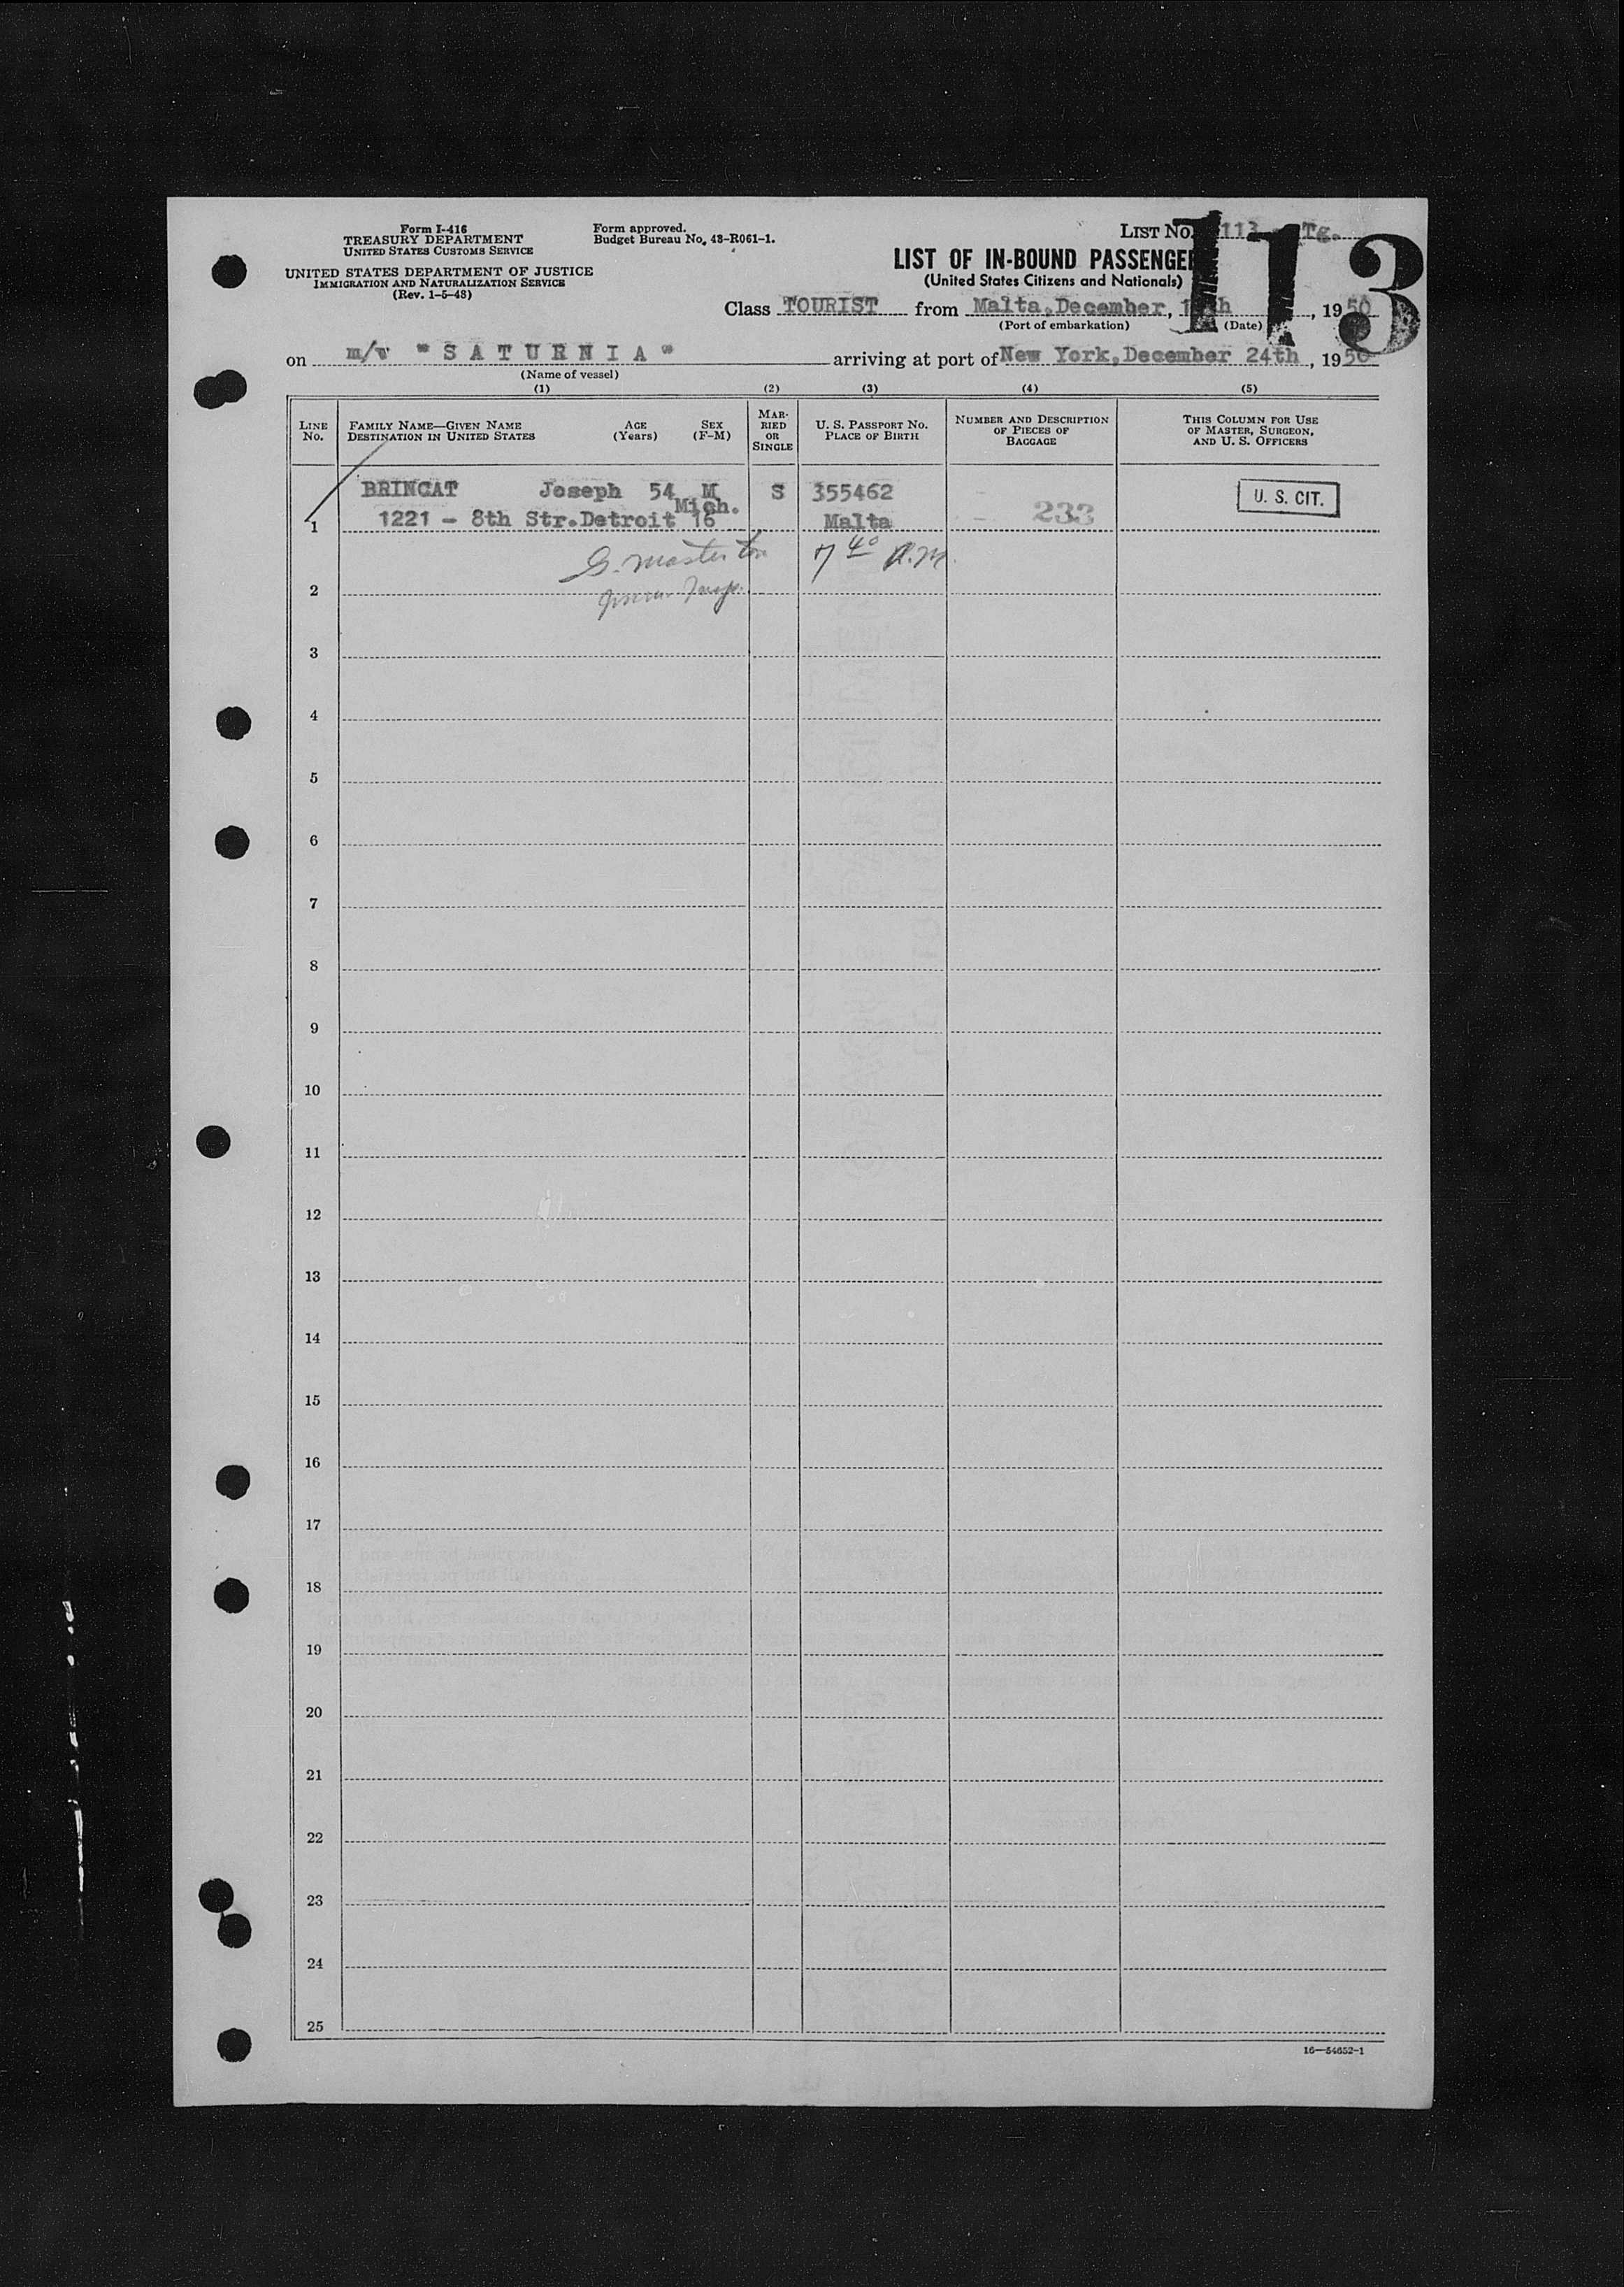 Form I-416
TREASURY DEPARTMENT
UNITED STATES CUSTOMS SERVICE
UNITED STATES DEPARTMENT OF JUSTICE
IMMIGRATION AND NATURALIZATION SERVICE
(Rev. 1-5-48)
Form approved.
Budget Bureau No. 43-R061-1.
LIST No. 113 Tg.
113
LIST OF IN-BOUND PASSENGE
(United States Citizens and Nationals)
Class TOURIST from Malta, December, , 1950
(Port of embarkation) (Date)
on m/v "SATURNIA" arriving at port of New York, December 24th, 1950
(Name of vessel)
(1) (2) (3) (4) (5)
LINE No. FAMILY NAME—GIVEN NAME DESTINATION IN UNITED STATES AGE (Years) SEX (F-M) MARRIED OR SINGLE U. S. PASSPORT NO. PLACE OF BIRTH NUMBER AND DESCRIPTION OF PIECES OF BAGGAGE THIS COLUMN FOR USE OF MASTER, SURGEON, AND U. S. OFFICERS
BRINCAT Joseph 54 M S 355462 U. S. CIT.
1 1221 - 8th Str. Detroit 16 Mich. Malta 233
G. Masterton 7 40 A.M.
2
3
4
5
6
7
8
9
10
11
12
13
14
15
16
17
18
19
20
21
22
23
24
25
16—54652-1